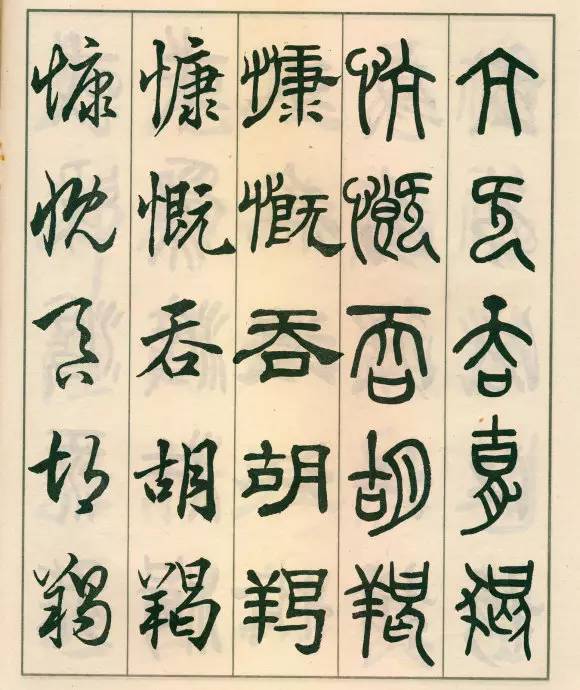 亢旡吞
忼慨吞胡羯
慷慨吞胡羯
慷慨吞胡羯
慷慨吞胡羯